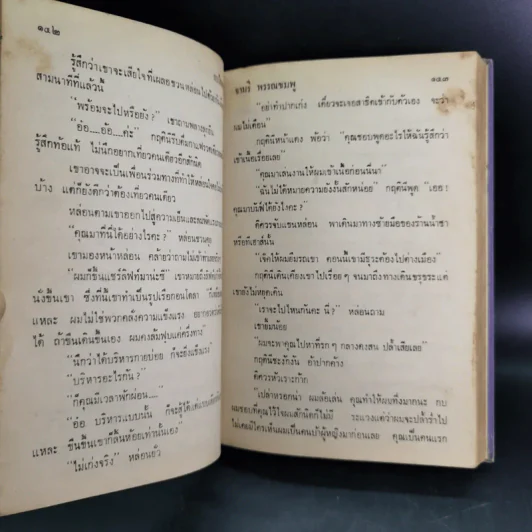 ๑๔๒
รู้สึกว่าเขาจะเสียใจที่เผลอชวนหล่อนไป
สามนาทีที่แล้วนี้
"พร้อมจะไปหรือยัง?" เขาถามพลาง
"อ้อ.....อ้อ.....ค่ะ" กฤตินีรับ
รู้สึกท้อแท้ ไม่นึกอยากเที่ยวคนเดียวอีกสักนิด
เขาอาจจะเป็นเพื่อนร่วมทางที่ทำให้หล่อน
บ้าง แต่ก็ยังดีกว่าต้องเที่ยวคนเดียว
หล่อนตามเขาออกไปสู่ความเย็นและ
"คุณมาที่นี่ได้อย่างไรคะ?" หล่อนชวนคุย
เขามองหน้าหล่อน คล้ายว่าถามไม่เข้าท่า
"ผมก็ขึ้นแชร์ลิฟท์มาน่ะซี" เขาหมายถึง
นั่งขึ้นเขา ซึ่งที่นี่เขาทำเป็นรูปเรือกอนโดลา
แหละ ผมไม่ใช่พวกคลั่งความแข็งแรง
ได้ ถ้าขืนเดินขึ้นเอง ผมคงล้มฟุบแค่ครึ่งทาง"
"นึกว่าได้บริหารกายบ่อย ก็จะยิ่งแข็งแรง"
"บริหารอะไรกัน?"
"ก็คุณมีเวลาพักผ่อน....."
"อ้อ บริหารแบบนั้น ก็จะสู้ได้แค่
แหละ ขืนขึ้นเขาก็ลิ้นห้อยเท่านั้นเอง"
"ไม่เก่งจริง" หล่อนยั่ว
นาวี พรรณชมพู
๑๔๓
"อย่าทำปากเก่ง เดี๋ยวจะเจอสาธิตเข้ากับตัวเอง จะว่า
ผมไม่เตือน"
กฤตินีหน้าแดง พ้อว่า "คุณชอบพูดอะไรให้ฉันรู้สึกว่า
เข้าเนื้อเรื่อยเลย"
"คุณมาเสนองานให้ผมเข้าเนื้อก่อนนี่นา"
"ฉันไม่ได้หมายความยังงั้นสักหน่อย" กฤตินีพูด "เออ
คุณมาบริฟให้ยังไงคะ?"
คีควรจับแขนหล่อน พาเดินมาทางซ้ายมือของร้านน้ำชา
หรือตีเฮาส์นั้น
"เจ็คให้ผมยืมรถเขา ตอนนี้เขามีธุระต้องไปต่างเมือง"
กฤตินีเดินเคียงเขาไปเรื่อยๆ จนมาถึงทางเดินขรุขระแต่
เขายังไม่หยุดเดิน
"เราจะไปไหนกันคะ นี่?" หล่อนถาม
เขายิ้มน้อย
"ผมจะพาคุณไปหาที่รกๆ กลางดงสน ปล้ำเสียเลย"
กฤตินีชะงักงัน อ้าปากค้าง
คีควรหัวเราะก๊าก
"เปล่าหรอกน่า ผมล้อเล่น คุณทำให้ผมทึ่งมากนะ กบ
ผมชอบที่คุณไว้ใจผมสักนิดก็ไม่มี ระแวงแต่ว่าผมจะปล้ำร่ำไป
ไม่เคยมีใครเห็นผมเป็นคนบ้าผู้หญิงมาก่อนเลย คุณเป็นคนแรก